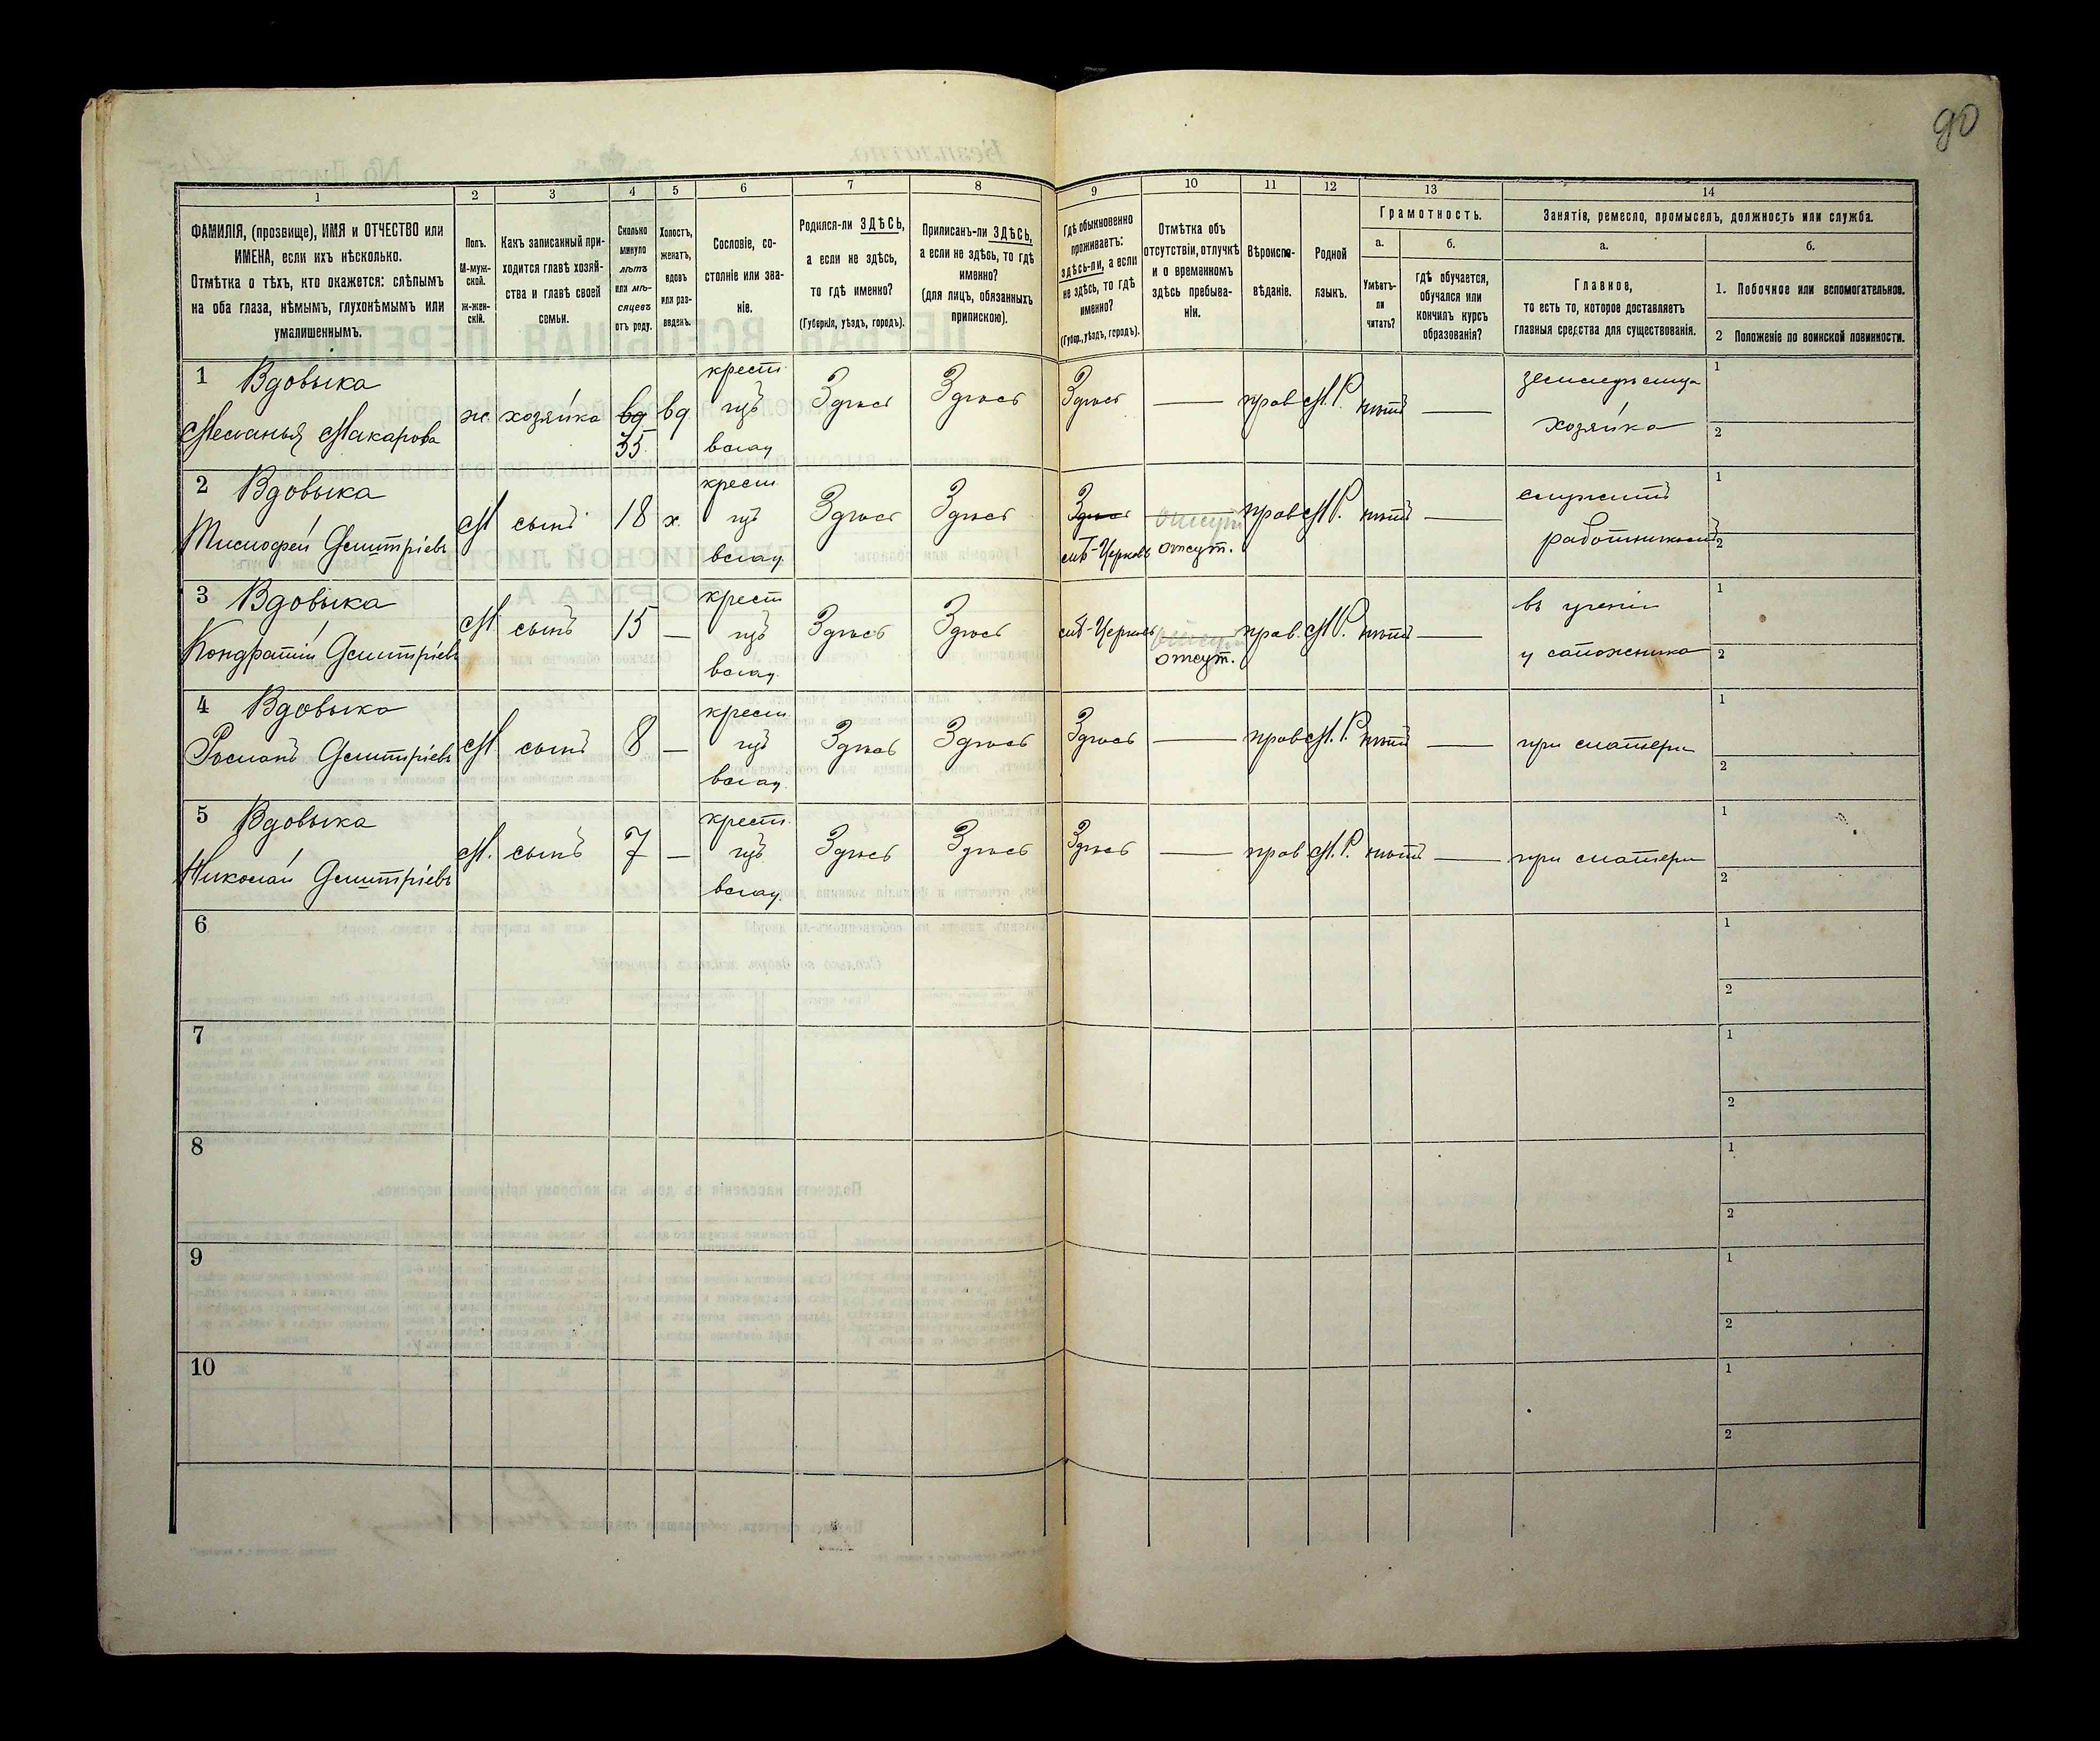 90
1 2 3 4 5 6 7 8 9 10 11 12 13 14
ФАМИЛІЯ, (прозвище), ИМЯ и ОТЧЕСТВО или
ИМЕНА, если ихъ нѣсколько.
Отмѣтка о тѣхъ, кто окажется: слѣпымъ
на оба глаза, нѣмымъ, глухонѣмымъ или
умалишеннымъ.
Полъ.
М-муж-
ской.
ж-жен-
скій.
Какъ записанный при-
ходится главѣ хозяй-
ства и главѣ своей
семьи.
Сколько
минуло
лѣтъ
или мѣ-
сяцевъ
отъ роду.
Холостъ,
женатъ,
вдовъ
или раз-
веденъ.
Сословіе, со-
стояніе или зва-
ніе.
Родился-ли ЗДѢСЬ,
а если не здѣсь,
то гдѣ именно?
(Губернія, уѣздъ, городъ).
Приписанъ-ли ЗДѢСЬ,
а если не здѣсь, то гдѣ
именно?
(для лицъ, обязанныхъ
припискою).
Гдѣ обыкновенно
проживаетъ:
здѣсь-ли, а если
не здѣсь, то гдѣ
именно?
(Губер., уѣздъ, городъ).
Отмѣтка объ
отсутствіи, отлучкѣ
и о временномъ
здѣсь пребыва-
ніи.
Вѣроиспо-
вѣданіе.
Родной
языкъ.
Грамотность.
а.
Умѣетъ-
ли
читать?
б.
гдѣ обучается,
обучался или
кончилъ курсъ
образованія?
Занятіе, ремесло, промыселъ, должность или служба.
а.
Главное,
то есть то, которое доставляетъ
главныя средства для существованія.
б.
1. Побочное или вспомогательное.
2 Положеніе по воинской повинности.
1 Вдовыка
Меланья Макарова
ж. хозяйка вд 35 вд.
крест.
изъ
влад.
Здѣсь Здѣсь Здѣсь — прав М.Р. нѣтъ —
земледѣлица
хозяйка
1
2
2 Вдовыка
Тимофей Дмитріевъ
М сынъ 18 х.
крест.
изъ
влад.
Здѣсь Здѣсь Здѣсь
отсут.
прав М.Р. нѣтъ —
служитъ
работникомъ
1
2
3 Вдовыка
Кондратій Дмитріевъ
М. сынъ 15 —
крест
изъ
влад.
Здѣсь Здѣсь
отсут.
прав. М.Р. нѣтъ —
въ ученіи
у сапожника
1
2
4 Вдовыка
Романъ Дмитріевъ
М сынъ 8 —
крест.
изъ
влад.
Здѣсь Здѣсь Здѣсь — прав М.Р. нѣтъ — при матери
1
2
5 Вдовыка
Николай Дмитріевъ
М. сынъ 7 —
крест.
изъ
влад
Здѣсь Здѣсь Здѣсь — прав М.Р. нѣтъ — при матери
1
2
6
1
2
7
1
2
8
1
2
9
1
2
10
1
2